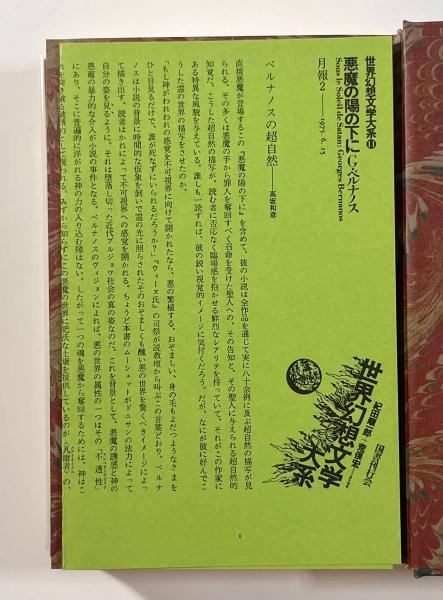 世界幻想文学大系⓫
悪魔の陽の下に G・ベルナノス
Sous le Soleil de Satan: Georges Bernanos
月報2——1975. 6. 15
紀田順一郎
荒俣宏
国書刊行会
世界幻想文学大系
ベルナノスの超自然——高坂和彦
直接悪魔が登場するこの『悪魔の陽の下に』を含めて、彼の小説は全作品を通じて実に八十余例に及ぶ超自然の描写が見
られる。その多くは悪魔の手から罪人を奪回すべく召命を受けた聖人への、その告知と、その聖人に与えられる超自然的
知覚だ。こうした超自然の描写が、読む者に否応なく臨場感を抱かせる鮮烈なレアリテを持っていて、それがこの作家に
ある特異な風貌を与えている。誰しも一読すれば、彼の鋭い視覚的イメージに気付くだろう。だが、なにが彼に好んでこ
うした霊の世界の描写をさせたのか。
「もし神がわれわれの感覚を不可視界に向けて開かれたなら、悪の繁殖する、おぞましい、身の毛もよだつようなさまを
ひと目見るだけで、誰が死なずにいられるだろうか？」『ウィーヌ氏』の司祭が説教壇から叫ぶこの言葉どおり、ベルナ
ノスは小説の背景に時間的な仮象を剝いで霊の光に照らされたそのおぞましくも醜い悪の世界を驚くべきイメージによっ
て描き出す。読者はかれによって不可視界への感覚を開かれる。ちょうど本書のムーシェットがドニサンの法力によって
自分の姿を見るように。それは堕落し切った近代ブルジョワ社会の真の姿なのだ。これを背景として、悪魔の誘惑と神の
恩寵の暴力的な介入が小説の事件となる。ベルナノスのヴィジョンによれば、悪の世界の属性の一つはその「不透性」
にあり、そこに普遍的に洋がれる神の力の入り込む隙はない。したがって一つの魂を悪魔から奪回するためには、神はこ
れを突き破る破壊力として現われる。みずから知らずにこの悪魔の世界に肥沃な土壌を提供しているのが〈凡庸者〉の、
1